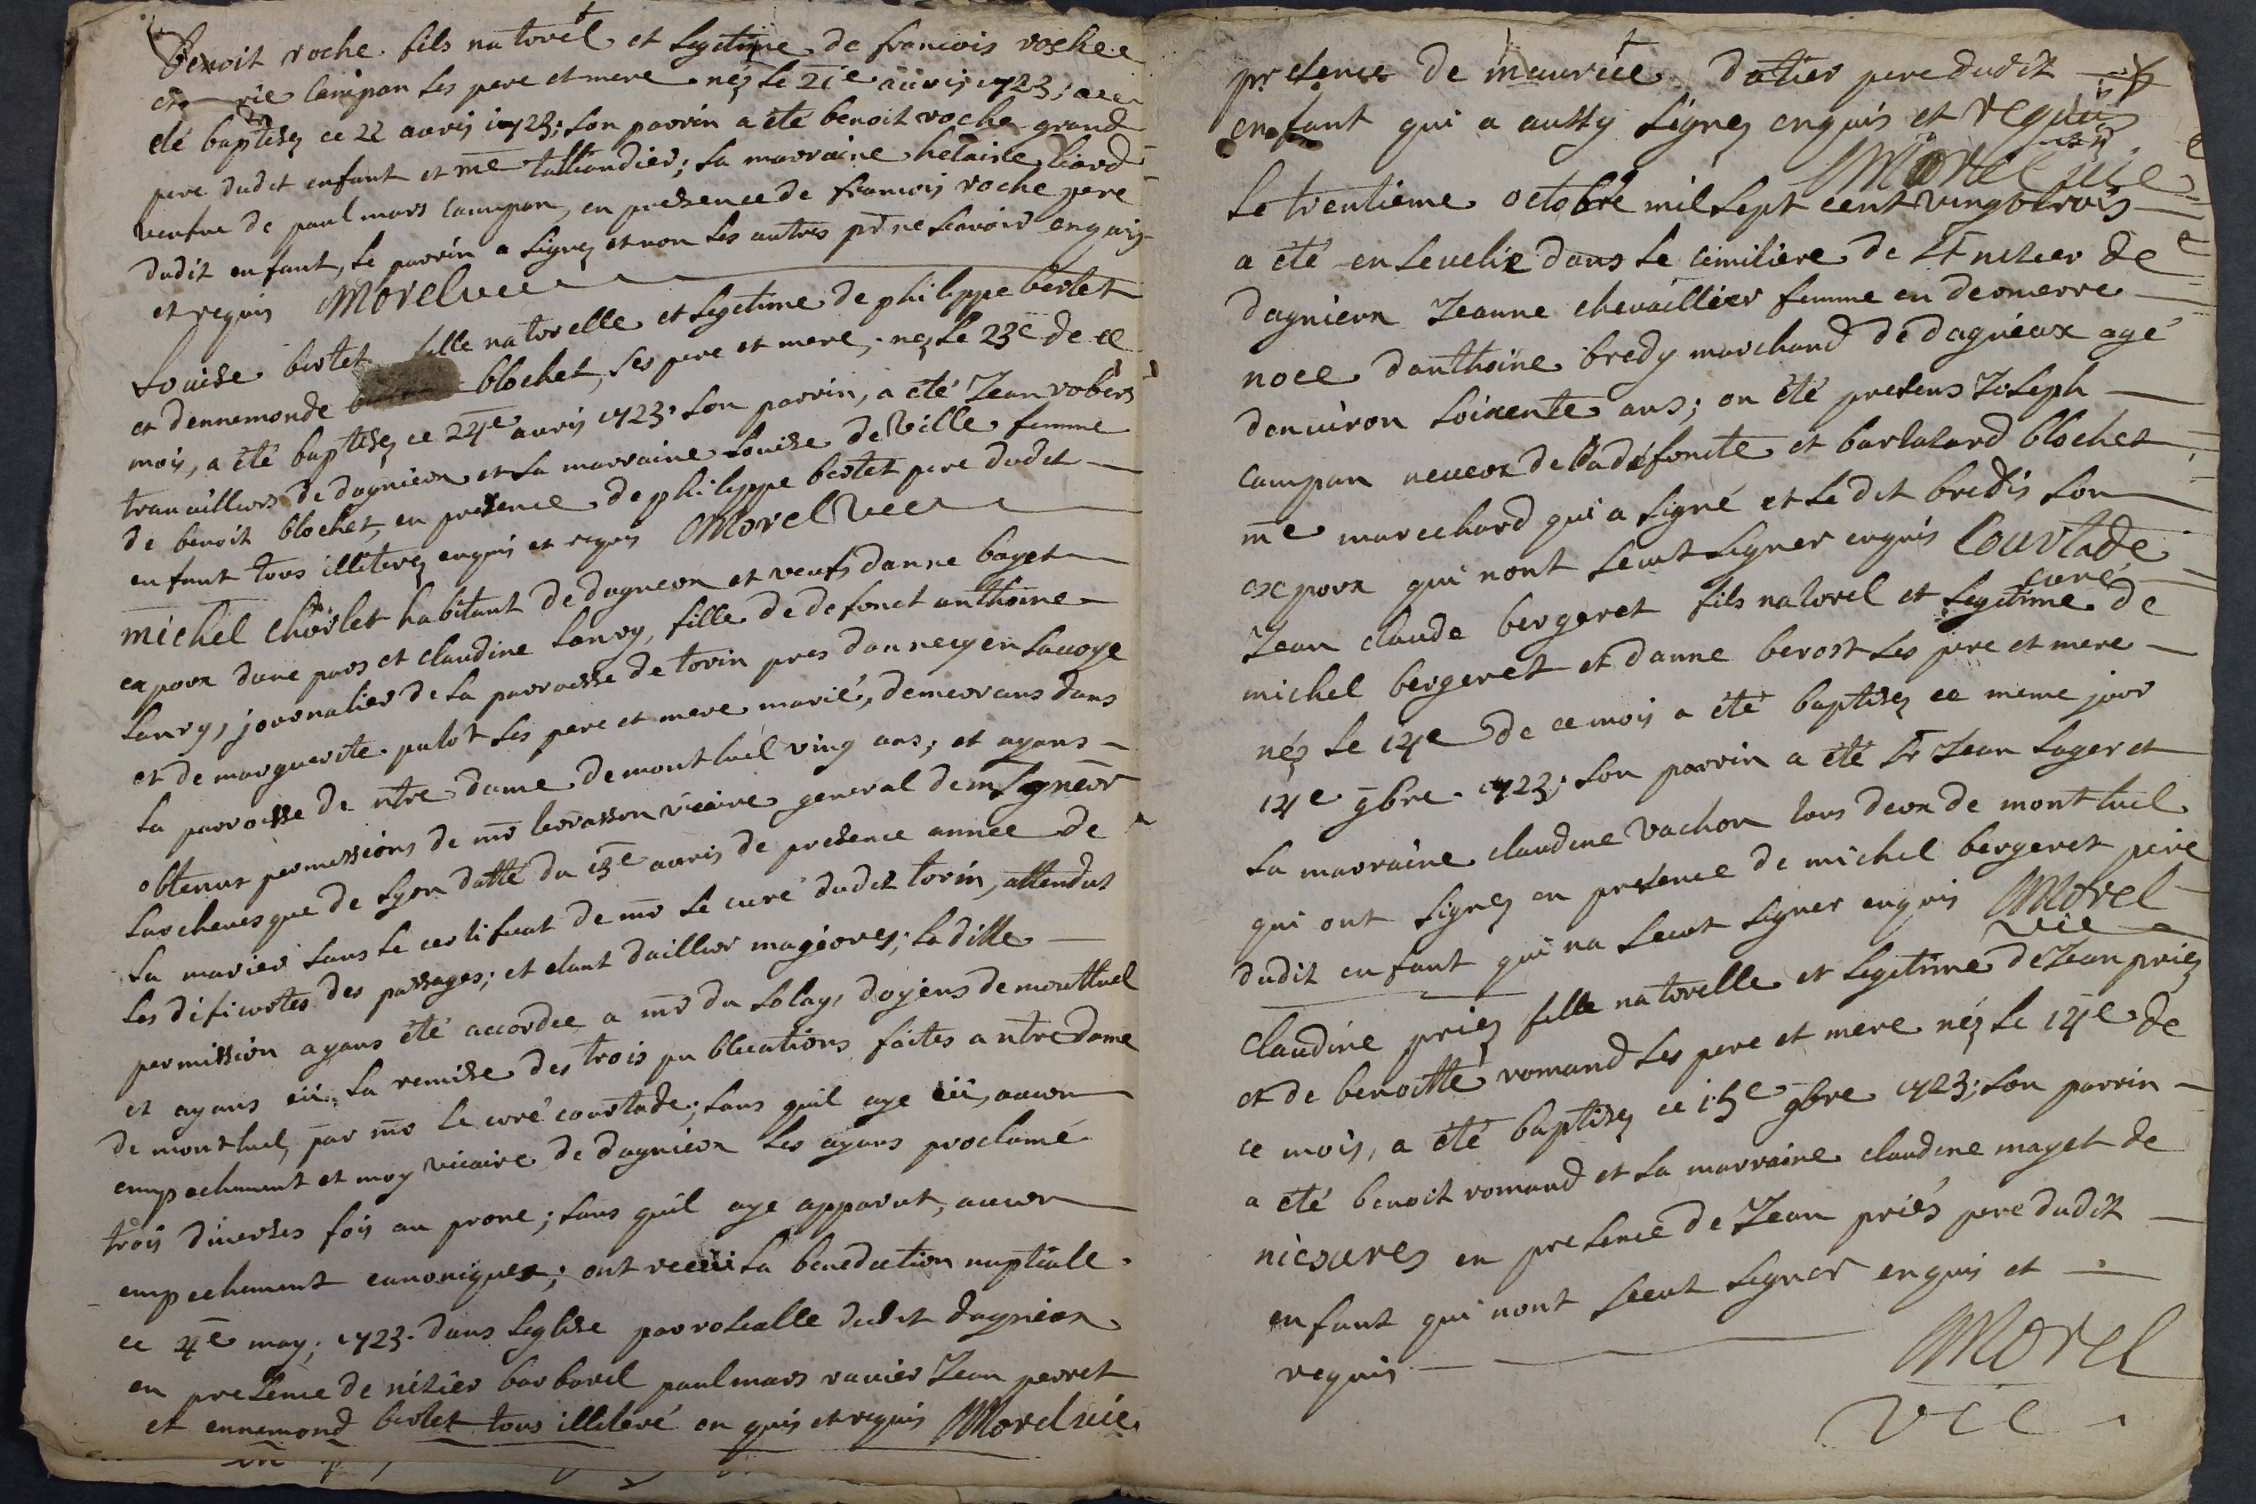 Benoit roche fils naturel et legetime de francois roche
et rie Campan ses pere et mere néz le 21e avvis 1723; a
été baptisez ce 22 avvis 1723; son parrin a été benoit roche grand
pere dudit enfant et me tallandier; sa marraine helaine liard
veufve de paul mars campan, en presence de francois roche pere
dudit enfant, le parrin a signez et non les autres pr ne scavoir enquis
et requis Morel vic
Louise bertet fille natorelle et legetime de philippe bertet
et dennemonde blochet, ses pere et mere, nez le 23e de ce
mois, a été baptisez ce 24e avvis 1723. son parrin, a été Jean robert
travailliors de dagnieux et sa marraine Louise de Ville femme
de benoit blochet, en presence de philippe bertet pere dudit
enfant tous illiterez enquis et requis Morel Vic
michel chorlet habitant de dagneux et veufs danne bayet
expoux dune pars et claudine Lanvy, fille de defonct anthoine
Lanvy, journalier de la parroisse de torin pres dannecy en Savoye
et de marguerite pulot ses pere et mere marié, demeorans dans
la parroisse de ntre dame de montluel ving ans; et ayans
obtenus permissions de mr terrasson vicaire general de mSgneor
Larchevesque de Lyon datté du 13e avvis de presence annee de
sa marier sans le certificat de mr le curé dudit torin, attendut
les dificortes des passages; et etant daillior mageores; la ditte
permission ayans été accordee a mr du solay, doyens de montluel
et ayans eü la remise des trois publications faites a ntre dame
de montluel, par mr le curé courtade; sans quil aye eü, aucun
empechement et moy vicaire de dagnieux les ayans proclamé
trois diverses fois au prone; sans quil aye apparut, aucun
empechement canoniques; ont receü la benediction nuptialle
ce 4e may; 1723. dans leglise parrosialle dudit dagnieux
en presence de nizier barbarel paul mars ravier Jean perret
et ennemond bertet tous illiteré enquis et requis Morel vic
presence de maurice datier pere dudit
enfant qui a aussy signez enquis et requis
Morel vic
Le trentieme octobre mil sept cent vingt trois
a été ensevelie dans le cimitiere de St nizier de
dagnieux Jeanne chevaillier femme en derniere
noce danthoine bredy marchand de dagnieux agé
denviron soixente ans; on été presens Joseph
campan neveux de la defoncte et barlatard blochet
me marechard qui a signé et le dit bredis son
expoux qui nont sceut signer enquis Courtade
curé
Jean claude bergeret fils natorel et legetime de
michel bergeret et danne berost ses pere et mere
néz le 14e de ce mois a été baptisez ce meme jour
14e 9bre 1723; son parrin a été Sr Jean Lager et
sa marraine claudine Vachon tous deux de montluel
qui ont signez en presence de michel bergeret pere
dudit enfant qui na sceut signer enquis Morel
vic
claudine priez fille natorelle et legetime de Jean priez
et de benoitte romand ses pere et mere néz le 14e de
ce mois, a été baptisez ce 15e 9bre 1723; son parrin
a été benoit romand et sa marraine claudine mayet de
en presence de Jean priés pere dudit
enfant qui nont sceut signer enquis et
requis
Morel
vic